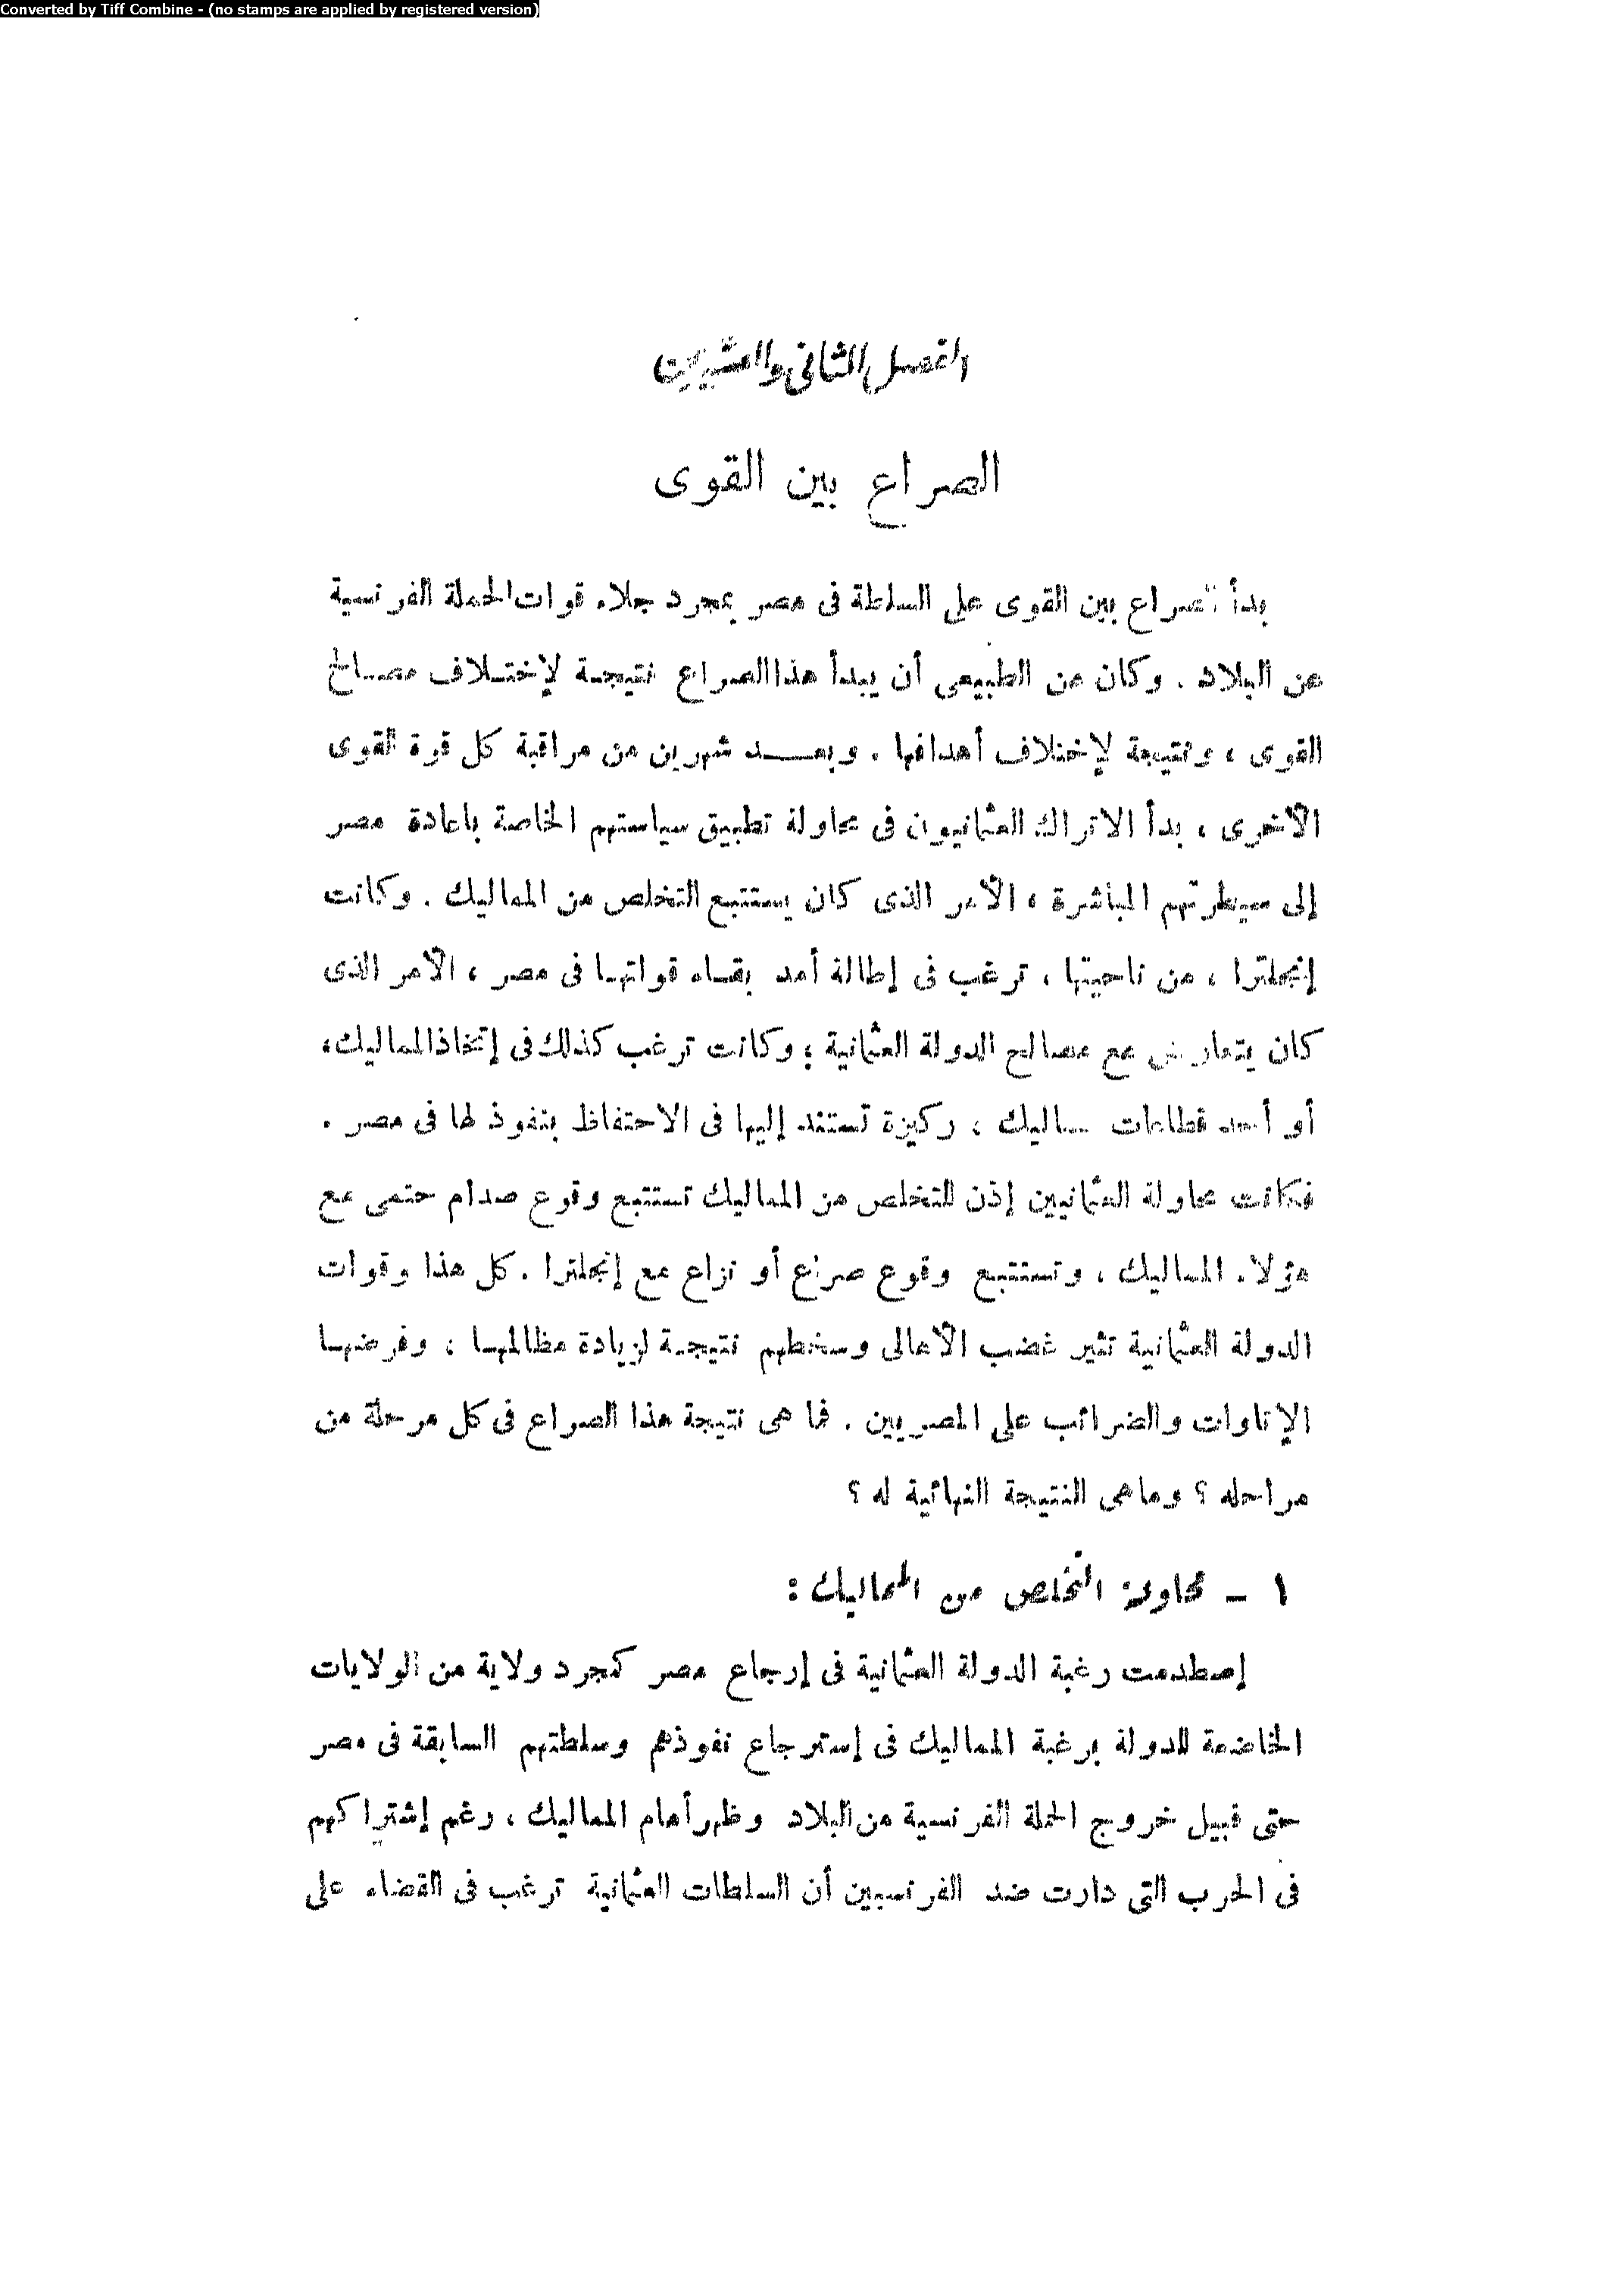 Converted by Tiff Combine - (no stamps are applied by registered version)
الفصل الثانى والعشرون
الصراع بين القوى
بدأ الصراع بين القوى على السلطة فى مصر بمجرد جلاء قوات الحملة الفرنسية
عن البلاد . وكان من الطبيعى أن يبدأ هذا الصراع نتيجة لإختلاف مصالح
القوى ، ونتيجة لإختلاف أهدافها . وبعد شهرين من مراقبة كل قوة القوى
الآخرى ، بدأ الاتراك العثمانيون فى محاولة تطبيق سياستهم الخاصة باعادة مصر
إلى سيطرتهم المباشرة ، الأمر الذى كان يستتبع التخلص من المماليك . وكانت
إنجلترا ، من ناحيتها ، ترغب فى إطالة أمد بقاء قواتها فى مصر ، الأمر الذى
كان يتعارض مع مصالح الدولة العثمانية ؛ وكانت ترغب كذلك فى إتخاذ المماليك ،
أو أحد قطاعات المماليك ، ركيزة تستند إليها فى الاحتفاظ بنفوذ لها فى مصر .
فكانت محاولة العثمانيين إذن للتخلص من المماليك تستتبع وقوع صدام حتمى مع
هؤلاء المماليك ، وتستتبع وقوع صراع أو نزاع مع إنجلترا . كل هذا وقوات
الدولة العثمانية تثير غضب الأهالى وسخطهم نتيجة لزيادة مظالمها ، وفرضها
الإتاوات والضرائب على المصريين . فما هى نتيجة هذا الصراع فى كل مرحلة من
مراحله ؟ وما هى النتيجة النهائية له ؟
١ – محاولة التخلص من المماليك :
إصطدمت رغبة الدولة العثمانية فى إرجاع مصر كمجرد ولاية من الولايات
الخاضعة للدولة برغبة المماليك فى إسترجاع نفوذهم وسلطتهم السابقة فى مصر
حتى قبيل خروج الحملة الفرنسية من البلاد وظهر أمام المماليك ، رغم إشتراكهم
فى الحرب التى دارت ضد الفرنسيين أن السلطات العثمانية ترغب فى القضاء على